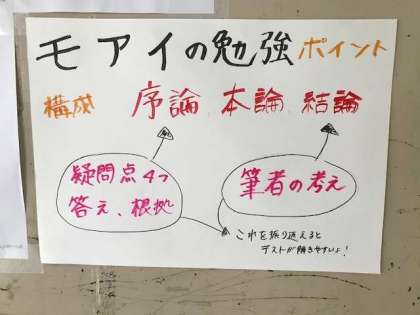 モアイの勉強ポイント
構成 序論 本論 結論
疑問点4つ
答え、根拠
筆者の考え
これを振り返ると
テストが解きやすいよ!